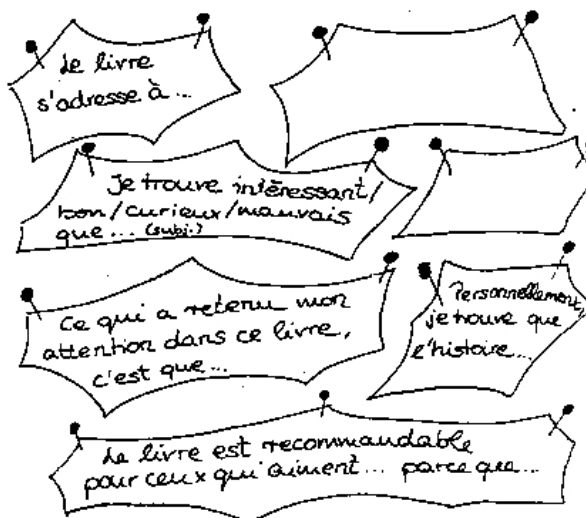 Le livre
s'adresse à...
Je trouve intéressant/
bon/curieux/mauvais
que... (subj.)
Ce qui a retenu mon
attention dans ce livre,
c'est que...
Personnellement,
je trouve que
l'histoire...
Le livre est recommandable
pour ceux qui aiment... parce que...